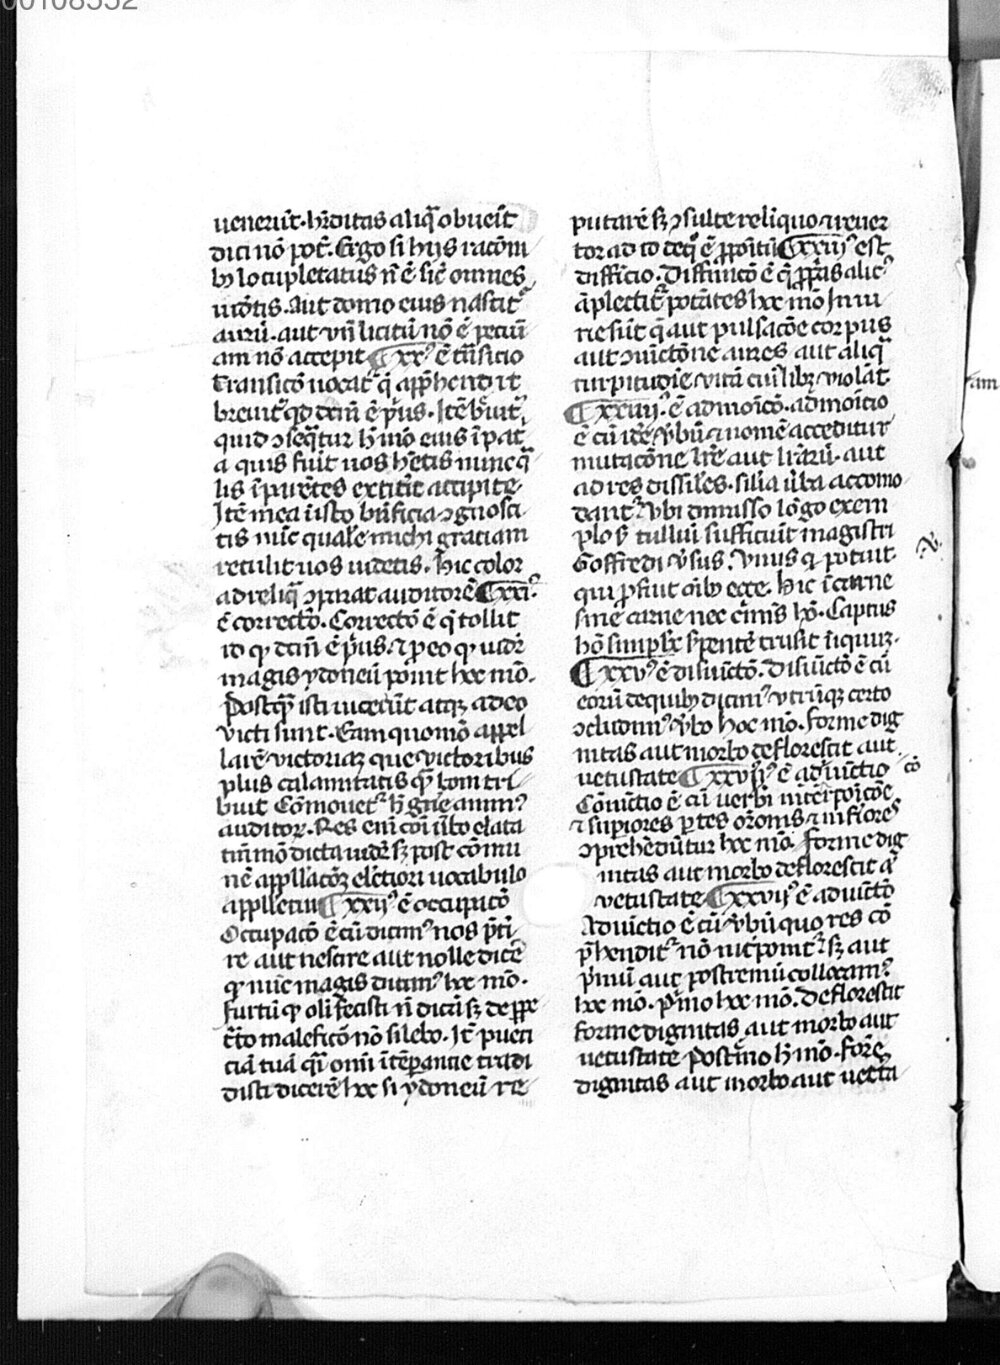 00108552
uenerūt. hr̄ditas aliqͣ obueīt
dici nō pot̄. Ergo si hijs racōni
bȝ locupletatus n̄ ē sic̄ omnes
uiōtis. Aut domo eius nascitᷣ
aurū. aut vn̄ licitū nō ē pecū
am nō accepit ¶ xxͦ ē trāsicio
Transicō uocatᷣ q̄ app̄hendit
breuit̾ qd dcm̄ ē p̾us. Itē br̄uit̾
quid ɔseq̄tur h̄ mō eius ī pat
a quis fuīt uos hētis nunc qͣ
lis ī pārētes extitīt accipite
Itē mea ī isto bn̄ficia ɔgnosci
tis nūc quale michi graciam
retulit uos uidetis. hic color
ad reliqͣ ɔparat auditorē ¶ xxiͦ.
ē correctō. Correctō ē q̄ tollit
id qͦ dcm̄ ē p̾us. ⁊ pro eo qͦ uidr̄
magis ydoneū ponit hoc mō.
Postqͣ isti uicerūt atqꝫ adeo
victi sunt. Eam quomō appel
larē victoriaꝫ que victoribus
plus calamitatis qͣ boni tri
buit Cōmouetᷣ h̄ gn̄e animꝰ
auditorꝫ. Res enī cōi ūbo elata
tm̄mō dicta uidr̄ sꝫ post cōmu
nē appllacōꝫ electiori uocabulo
applletur ¶ xxijͦ ē occupatō
Occupacō ē cū dicimꝰ nos p̄ti
re aut nescire aut nolle dicē
qͦ nūc magis dicimꝰ hoc mō.
furtū qͦ oli fecisti n̄ dicā sꝫ de ppe
tͣto maleficō nō silebo. Itē pueri
ciā tuā qͣ om̄i ītēperancie tradi
disti dicerē hoc si ydoneū re
putarē sꝫ ɔsulte relinquo ⁊ reuer
tor ad id de qͦ ē ppositū ¶ xxiijͦ est
disfincio. Disfinicō ē q̄ pprias alicͥ
āplectitᷣ potātes hoc mō Iniu
rie sūt q̄ aut pulsacōe corpus
aut ɔuictōne aures aut aliqͣ
turpitudīe vitā cuiꝰlibꝫ violāt
¶ xxiiijͦ. ē admoīcō. admoīcio
ē cū idē v̾bū ⁊ nomē acceditur
mutacōne lr̄e aut lr̄arū. aut
ad res dissiles. silia ūba accomo
dantᷣ v̾bi dimisso lōgo exem
plo s̾ tulliū sufficiūt magistri
Goffredi v̾sus. Vnus qͥ potuit
qui pfuit oībꝫ ecce. hic ī carne
sine carne nec cīmīs hō. Captus
hō simplex s̾pentē trusit īiquiꝫ.
¶ xxvͦ ē disiūctō. Disiūctō ē cū
eorū de quibꝫ dicimꝰ vtrūqꝫ certo
ɔcludimꝰ v̾bo hoc mō. forme dig
nitas aut morbo deflorescit aut
uetustate ¶ xxviͦ ē adiūctio cō
Cōiūctio ē cū uerbi inter̄poicōe
⁊ supiores p̄tes orōnis ⁊ īnfiores
ɔprehēdūtur hoc mō. forme dig
nitas aut morbo deflorescit aͭ
vetustate ¶ xxvijͦ ē adiūctō
Adiūctio ē cū v̾bū quo res cō
p̄henditᷣ nō īterponitᷣ sꝫ aut
p̾mū aut postremū collocamꝰ
hoc mō. p̾mo hoc mō. deflorescit
forme dignitas aut morbo aut
uetustate Postr̄mo h̄ mō. forē
dignitas aut morbo aut uetꝰta
am